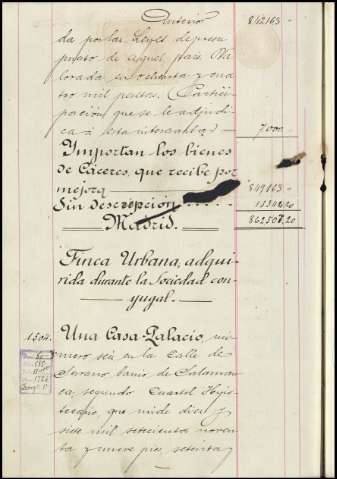 Anterior 842163 -
da por las Leyes de presu
puesto de aquel pais. Va
lorada en ochenta y cua
tro mil pesetas. (Partici
pación que se le adjudica
a esta interesada) 7000 -
Importan los bienes
de Cáceres, que recibe por
mejora 849163 -
Sin descripción 13344,20
Madrid. 862507,20
Finca Urbana, adqui
rida durante la Sociedad con
yugal.
1504. Una Casa-Palacio, nú
mero seis en la Calle de
Serrano, barrio de Salaman
ca, segundo Cuartel Hipo
tecario, que mide diez y
siete mil setecientos noven
ta y nueve pies, setenta y